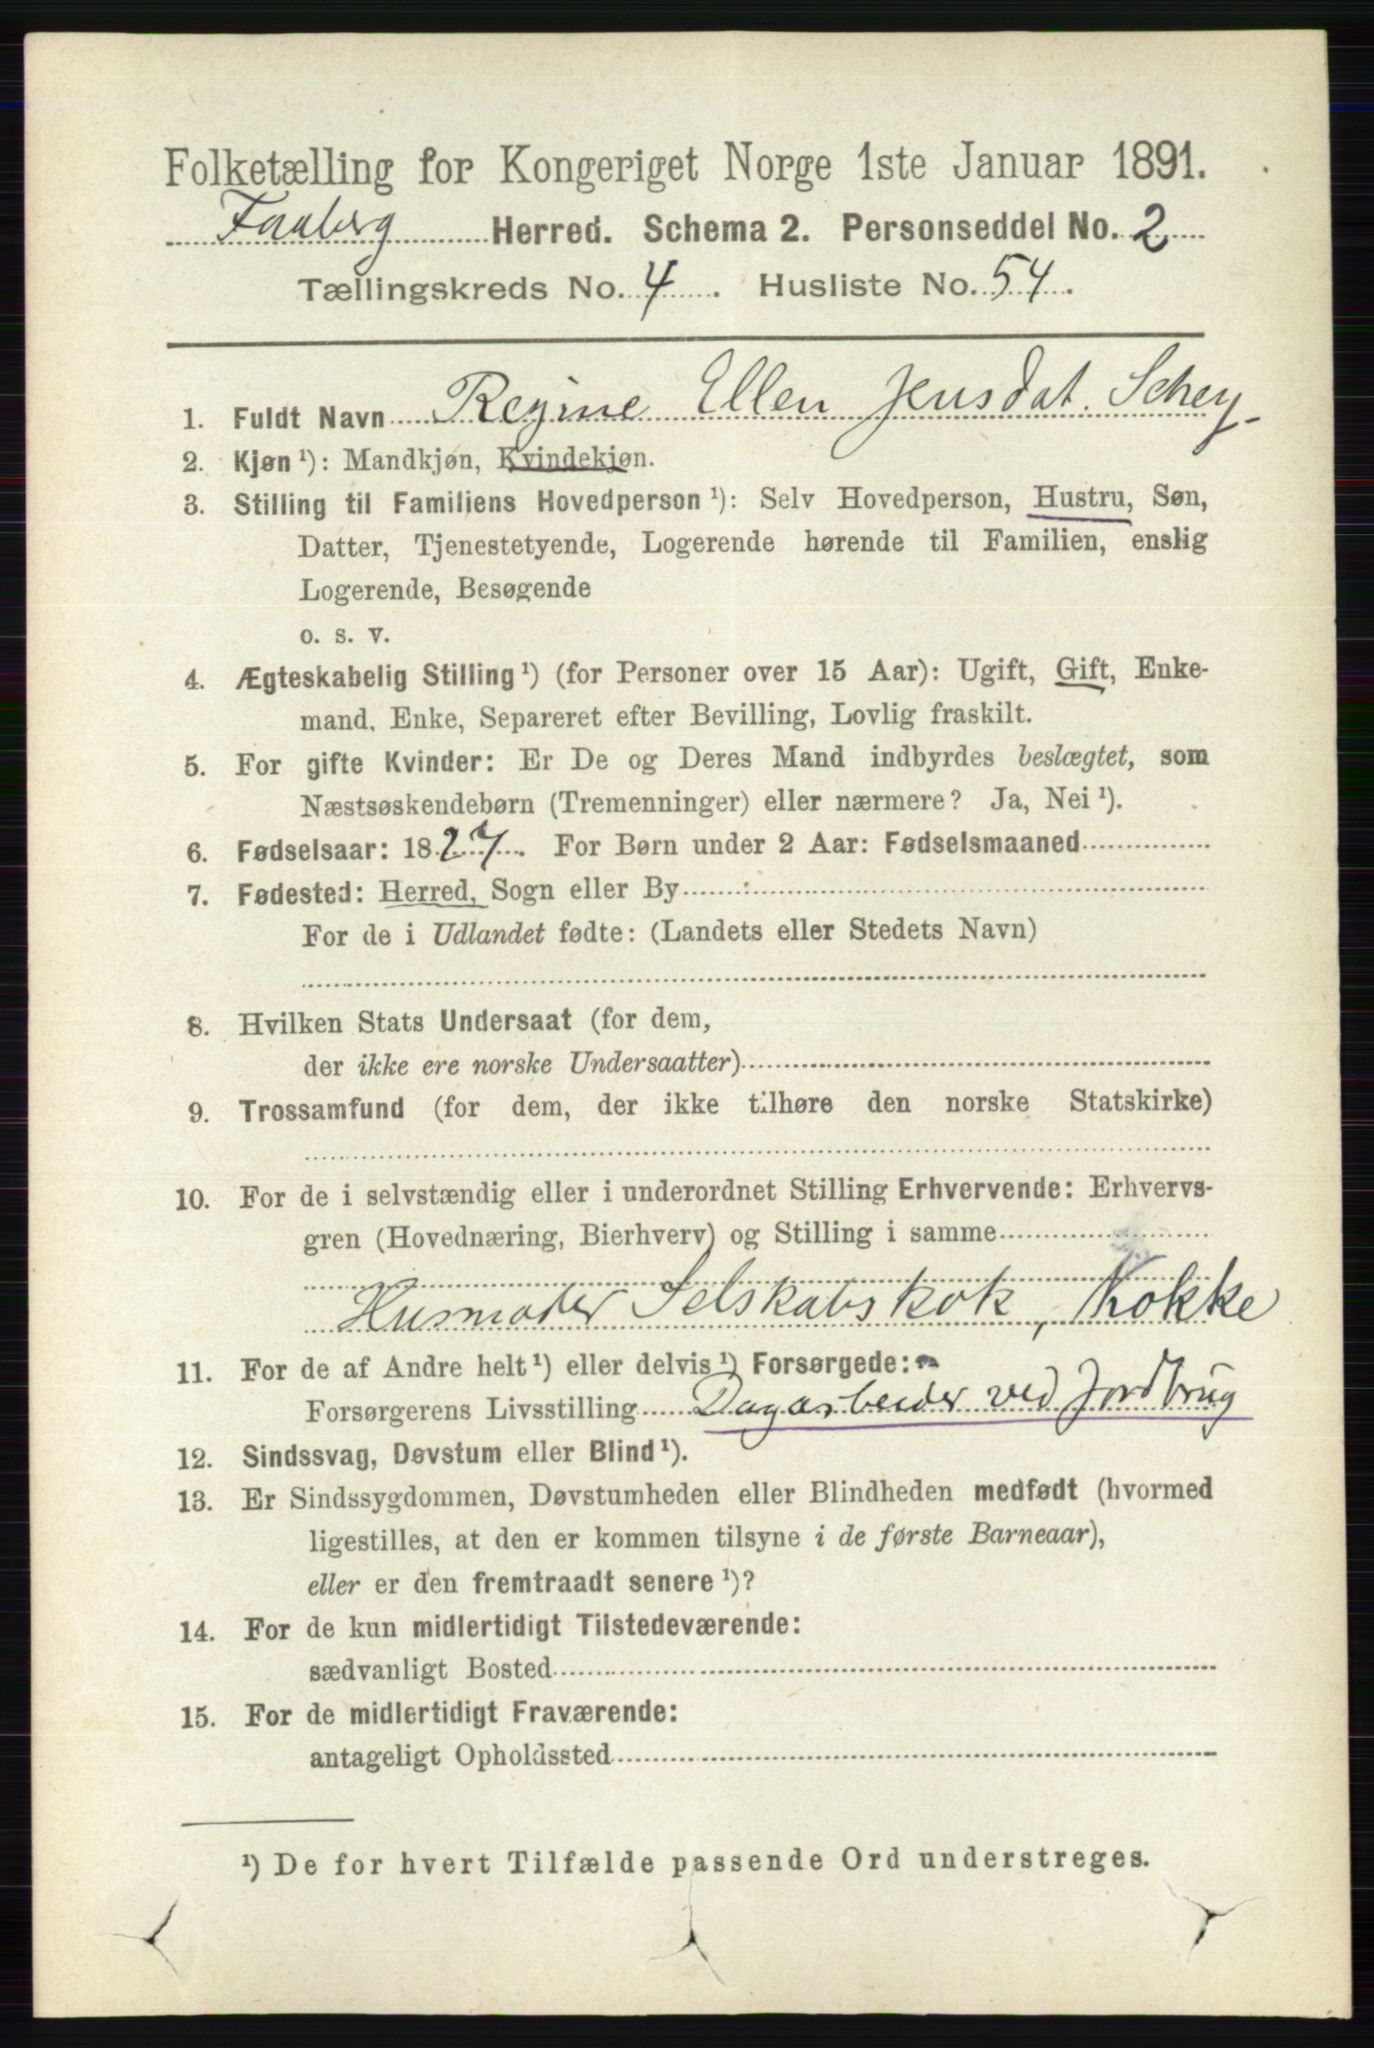 Folketælling for Kongeriget Norge 1ste Januar 1891.
Faaberg Herred. Schema 2. Personseddel No. 2
Tællingskreds No. 4. Husliste No. 54.
1. Fuldt Navn Regine Ellen Jensdat. Schey
2. Kjøn ¹): Mandkjøn, Kvindekjøn.
3. Stilling til Familiens Hovedperson ¹): Selv Hovedperson, Hustru, Søn,
Datter, Tjenestetyende, Logerende hørende til Familien, enslig
Logerende, Besøgende
o. s. v.
4. Ægteskabelig Stilling ¹) (for Personer over 15 Aar): Ugift, Gift, Enke-
mand, Enke, Separeret efter Bevilling, Lovlig fraskilt.
5. For gifte Kvinder: Er De og Deres Mand indbyrdes beslægtet, som
Næstsøskendebørn (Tremenninger) eller nærmere? Ja, Nei ¹).
6. Fødselsaar: 1827. For Børn under 2 Aar: Fødselsmaaned
7. Fødested: Herred, Sogn eller By
For de i Udlandet fødte: (Landets eller Stedets Navn)
8. Hvilken Stats Undersaat (for dem,
der ikke ere norske Undersaatter)
9. Trossamfund (for dem, der ikke tilhøre den norske Statskirke)
10. For de i selvstændig eller i underordnet Stilling Erhvervende: Erhvervs-
gren (Hovednæring, Bierhverv) og Stilling i samme
Husmoder Selskabskok, Kokke
11. For de af Andre helt ¹) eller delvis ¹) Forsørgede:
Forsørgerens Livsstilling Dagarbeider ved Jordbrug
12. Sindssvag, Døvstum eller Blind ¹).
13. Er Sindssygdommen, Døvstumheden eller Blindheden medfødt (hvormed
ligestilles, at den er kommen tilsyne i de første Barneaar),
eller er den fremtraadt senere ¹)?
14. For de kun midlertidigt Tilstedeværende:
sædvanligt Bosted
15. For de midlertidigt Fraværende:
antageligt Opholdssted
¹) De for hvert Tilfælde passende Ord understreges.